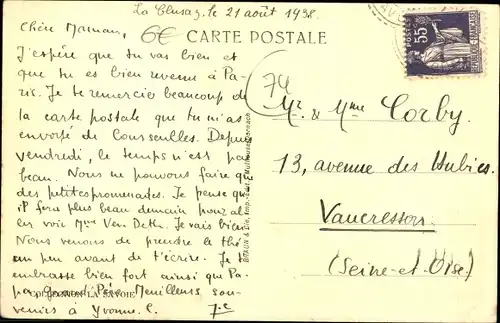 La Clusaz, le 21 août 1938.
Chère Maman, 6€ CARTE POSTALE
J'espère que tu vas bien et
que tu es bien revenue à Pa-
ris. Je te remercie beaucoup de
la carte postale que tu m'as
envoyée de Courseulles. Depuis
vendredi, le temps n'est pas
beau. Nous ne pouvons faire que
des petites promenades. Je pense qu'
il fera plus beau demain pour al-
ler voir Mme Van Deth. Je vais bien.
Nous venons de prendre le thé
un peu avant de t'écrire. Je t'
embrasse bien fort ainsi que Pa-
pa, Grand-Père. Meilleurs sou-
venirs à Yvonne.
COLLECTION LA SAVOIE
BRAUN & Cie, Imp.-Edit., Mulhouse-Dornach
74
55
POSTES
REPUBLIQUE FRANCAISE
Mr. & Mme Corby
13, avenue des Hubies.
Vaucresson
(Seine-et-Oise)